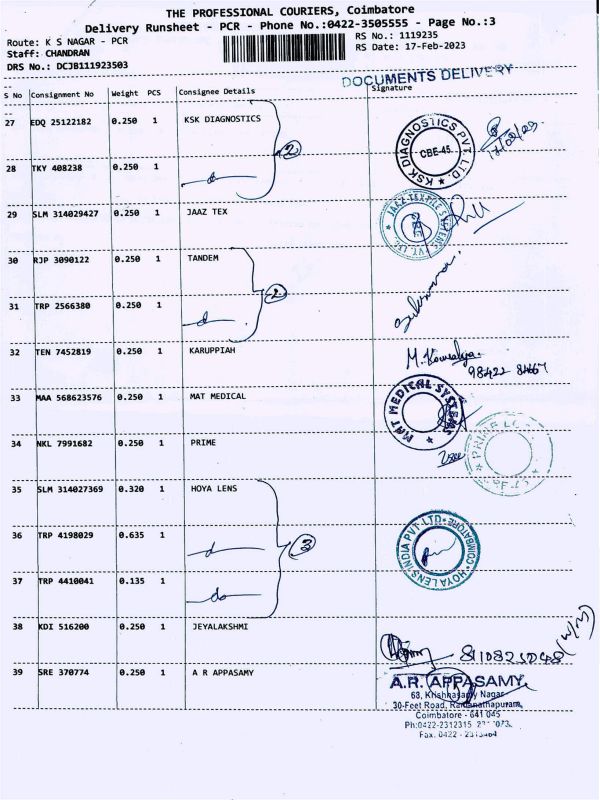 THE PROFESSIONAL COURIERS, Coimbatore
Delivery Runsheet - PCR - Phone No.:0422-3505555 - Page No.:3
Route: K S NAGAR - PCR
RS No.: 1119235
Staff: CHANDRAN
RS Date: 17-Feb-2023
DRS No.: DCJB111923503
DOCUMENTS DELIVERY
S No Consignment No Weight PCS Consignee Details Signature
27 EDQ 25122182 0.250 1 KSK DIAGNOSTICS
KSK DIAGNOSTICS PVT. LTD. CBE-45.
2
28 TKY 408238 0.250 1
29 SLM 314029427 0.250 1 JAAZ TEX
30 RJP 3090122 0.250 1 TANDEM
2
31 TRP 2566380 0.250 1
32 TEN 7452819 0.250 1 KARUPPIAH
M. Kowsalya.
33 MAA 568623576 0.250 1 MAT MEDICAL
MAT MEDICAL SYSTEMS
34 NKL 7991682 0.250 1 PRIME
PRIME
35 SLM 314027369 0.320 1 HOYA LENS
36 TRP 4198029 0.635 1
3
HOYA LENS INDIA PVT LTD COIMBATORE
37 TRP 4410041 0.135 1 do
38 KDI 516200 0.250 1 JEYALAKSHMI
39 SRE 370774 0.250 1 A R APPASAMY
A.R. APPASAMY
63, Krishnasamy Nagar
30-Feet Road, Ramanathapuram,
Coimbatore - 641 045
Ph:0422-2312315
Fax: 0422 -